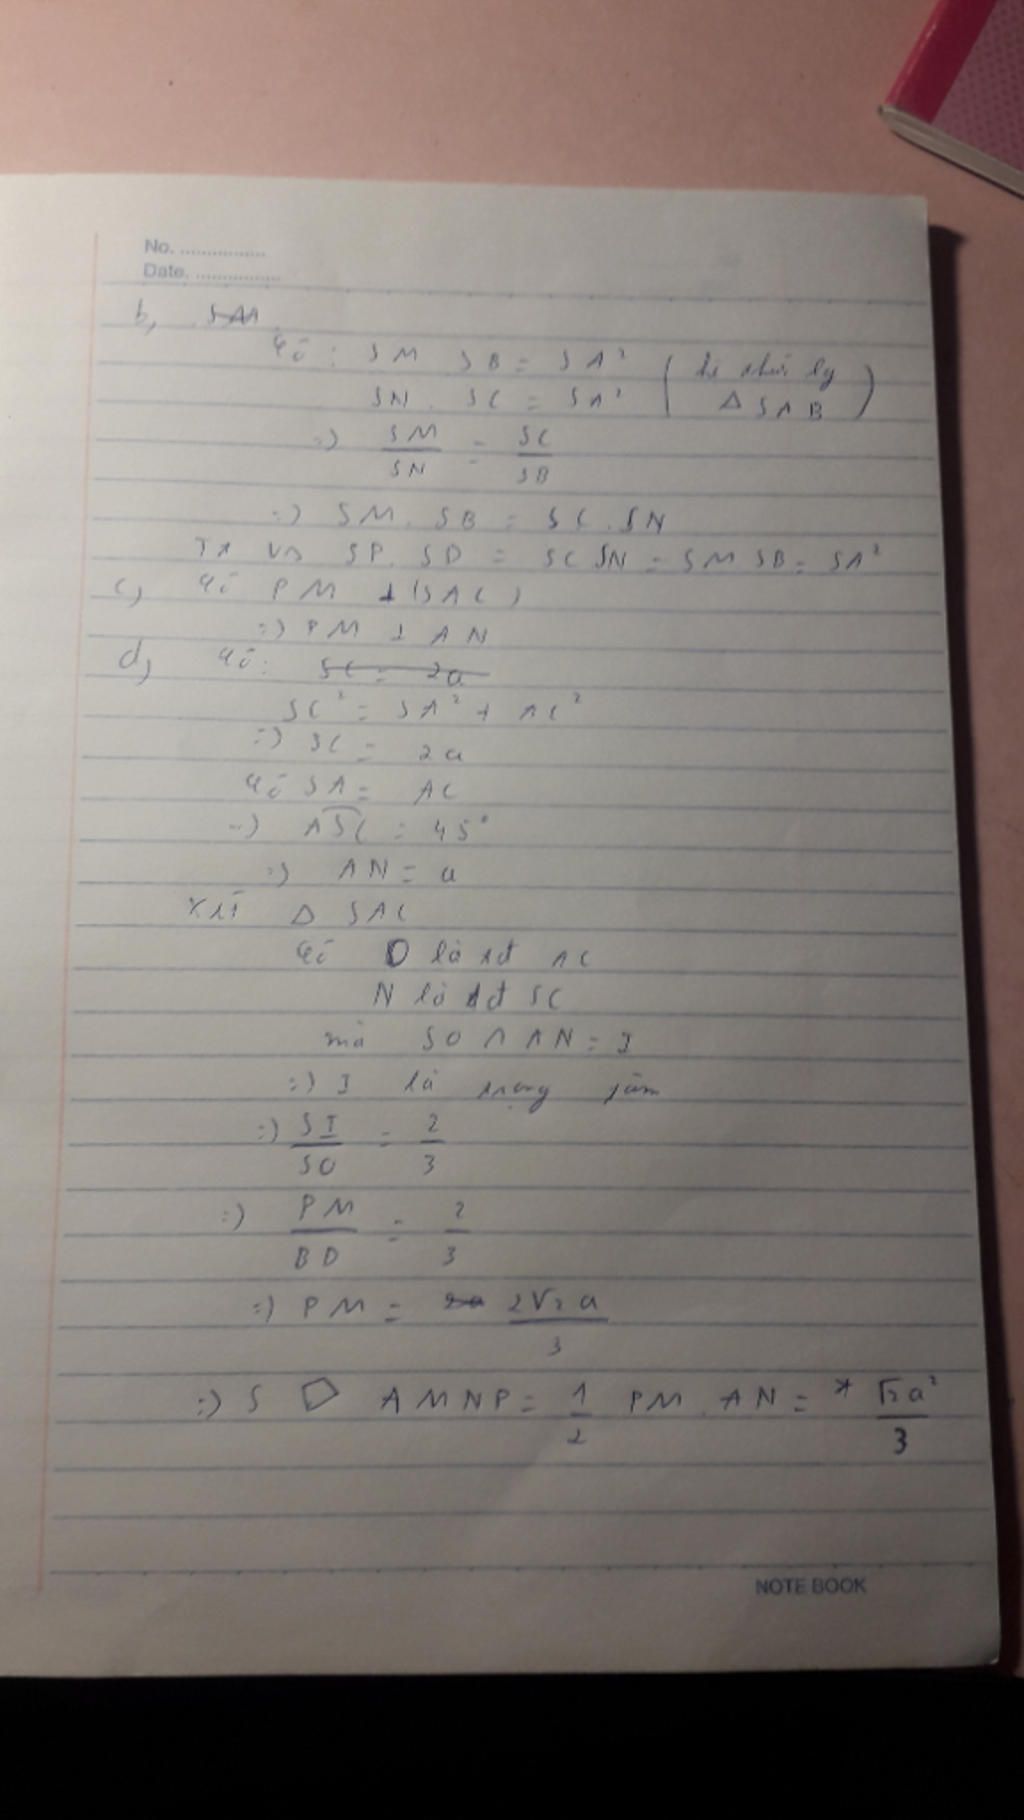 No. ................
Date. ................
b,
có : SM SB = SA²
SN . SC = SA² ( ΔSAB )
=) SM/SN = SC/SB
=) SM. SB = SC. SN
SP. SD = SC SN = SM SB = SA²
c, có PM ⊥ (SAC)
=) PM ⊥ AN
d, có: SC = 2a
SC² = SA² + AC²
=) SC = 2a
có SA = AC
=) ASC = 45°
=) AN = a
xét Δ SAC
có O là tđ AC
N là tđ SC
mà SO ∩ AN = I
=) I là trọng tâm
=) SI/SO = 2/3
=) PM/BD = 2/3
=) PM = 2√2 a/3
=) S ▱ AMNP = 1/2 PM . AN = √2 a²/3
NOTE BOOK